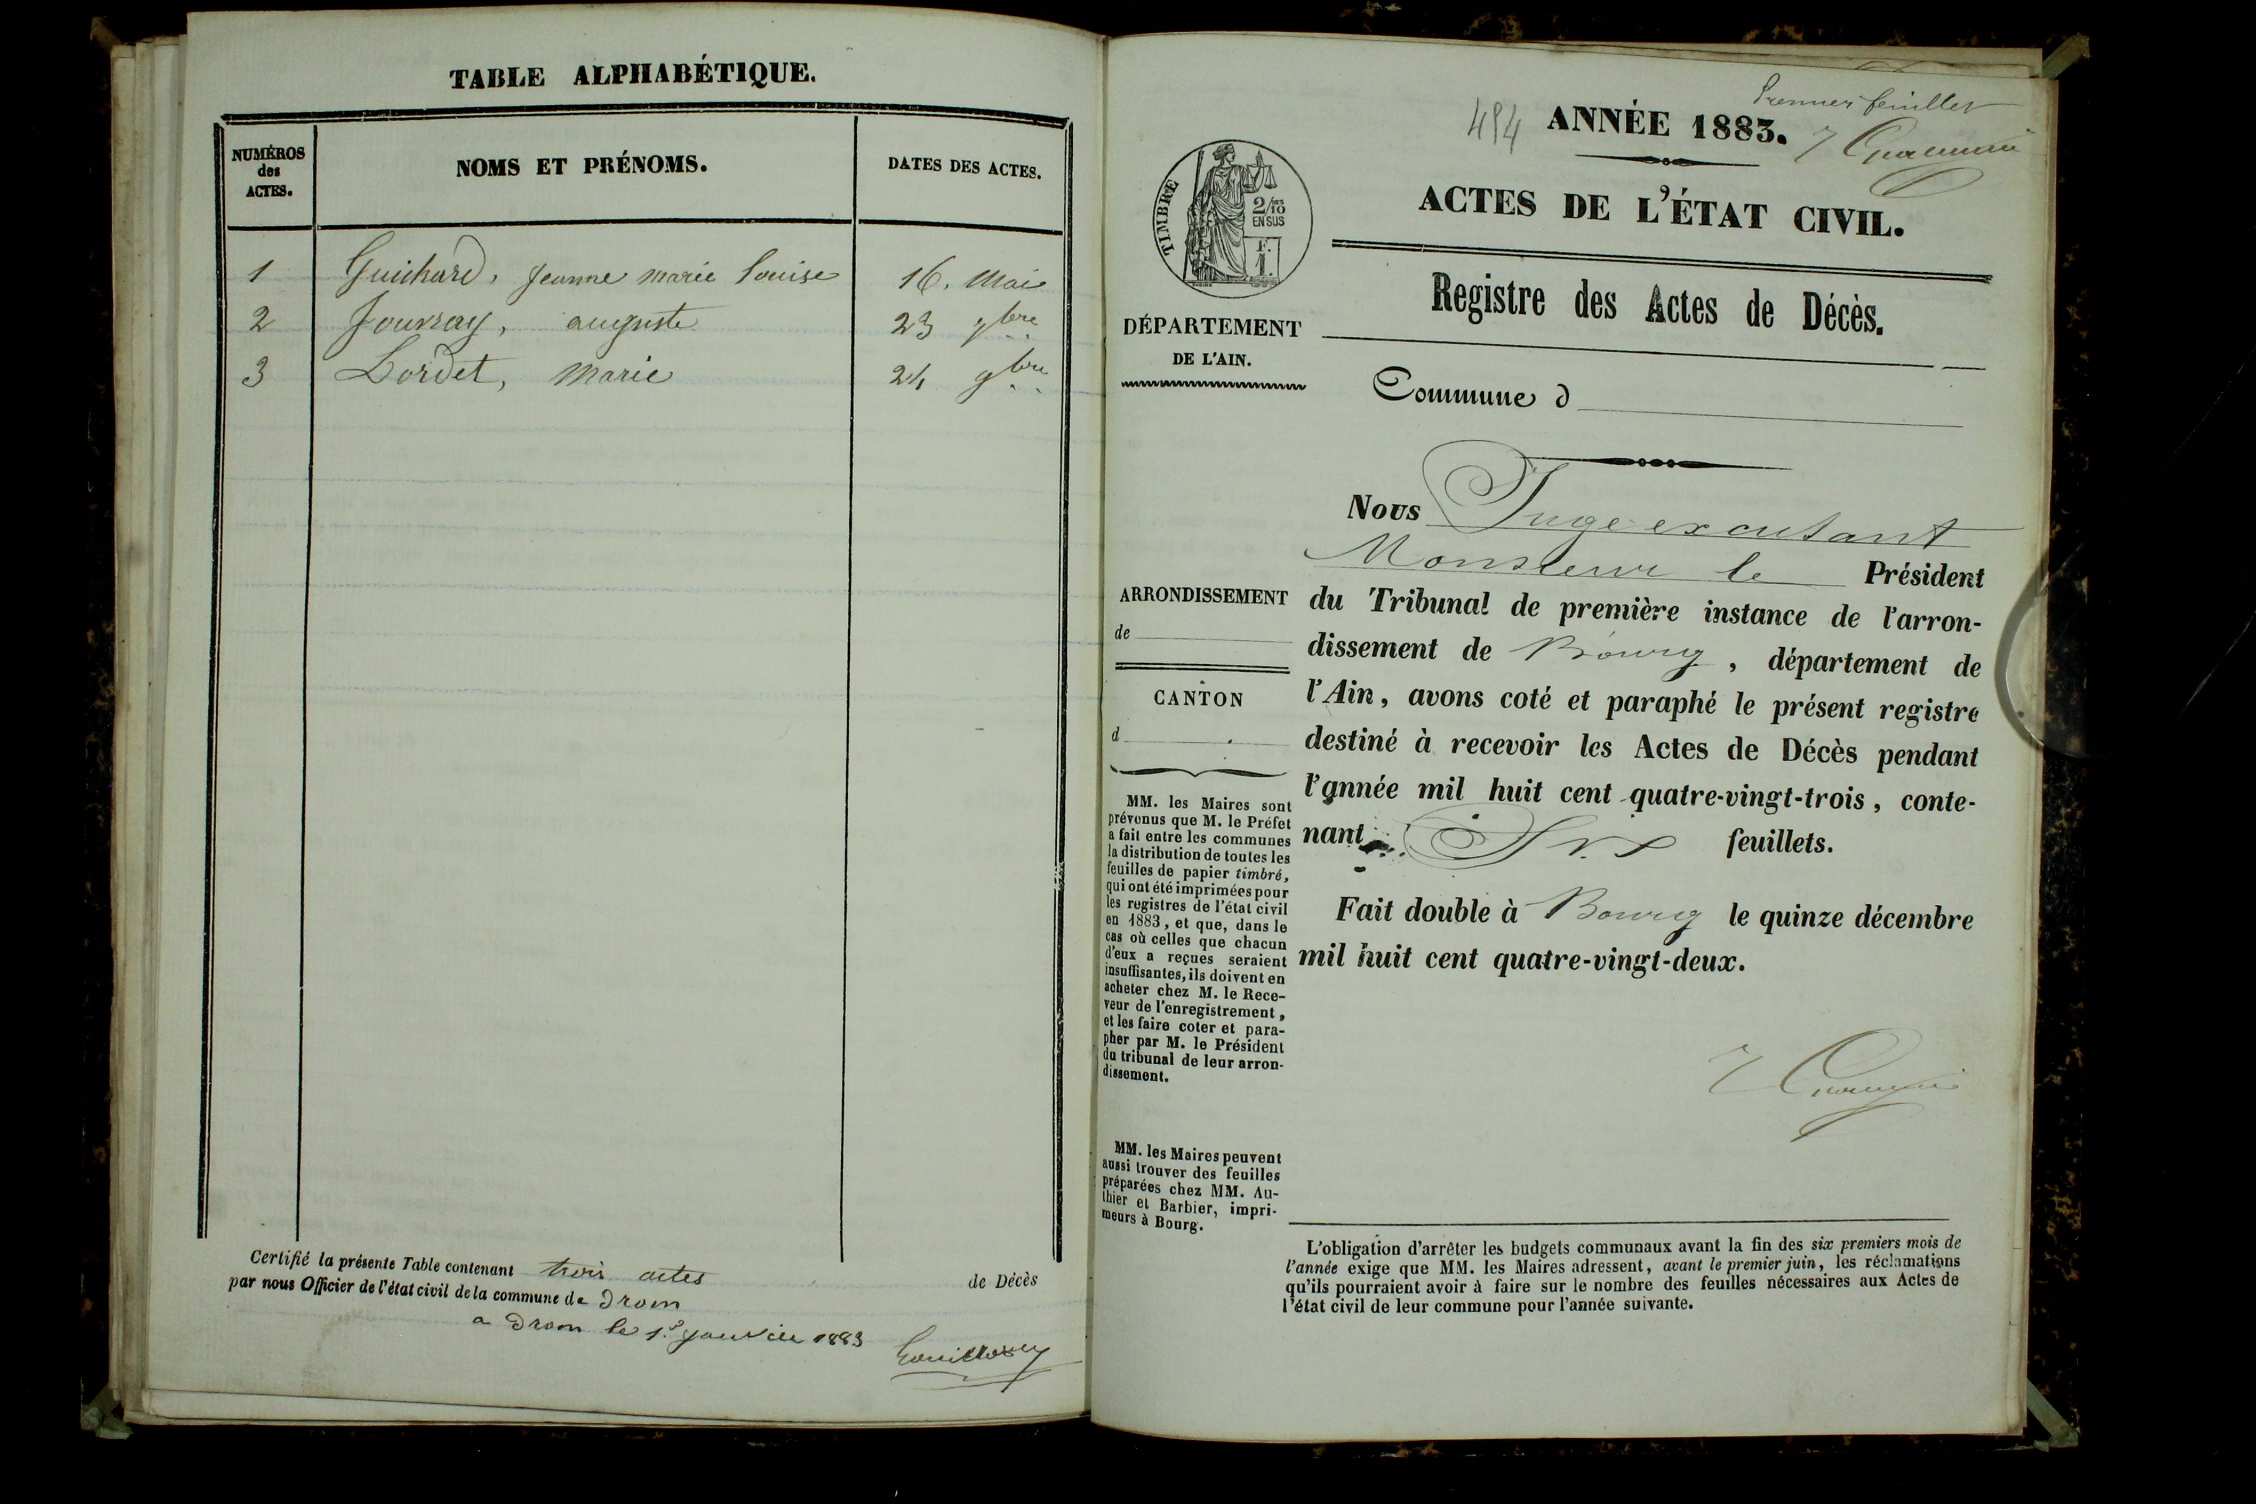 TABLE ALPHABÉTIQUE.
NUMÉROS
des
ACTES.
NOMS ET PRÉNOMS.
DATES DES ACTES.
1 Guichard, Jeanne marie Louise 16. Mai
2 Jouvray, auguste 23 9bre
3 Lordet, Marie 24 9bre
Certifié la présente Table contenant trois actes de Décès
par nous Officier de l'état civil de la commune de Drom
a Drom le 1er janvier 1883
Premier feuillet
494
ANNÉE 1883.
ACTES DE L'ÉTAT CIVIL.
Registre des Actes de Décès.
TIMBRE
2/10
EN SUS
F.
1.
DÉPARTEMENT
DE L'AIN.
Commune d
ARRONDISSEMENT
de
CANTON
d
MM. les Maires sont
prévenus que M. le Préfet
a fait entre les communes
la distribution de toutes les
feuilles de papier timbré,
qui ont été imprimées pour
les registres de l'état civil
en 1883, et que, dans le
cas où celles que chacun
d'eux a reçues seraient
insuffisantes, ils doivent en
acheter chez M. le Rece-
veur de l'enregistrement,
et les faire coter et para-
pher par M. le Président
du tribunal de leur arron-
dissement.
MM. les Maires peuvent
aussi trouver des feuilles
préparées chez MM. Au-
thier et Barbier, impri-
meurs à Bourg.
Nous Juge excutant
Monsieur le Président
du Tribunal de première instance de l'arron-
dissement de Bourg, département de
l'Ain, avons coté et paraphé le présent registre
destiné à recevoir les Actes de Décès pendant
l'année mil huit cent quatre-vingt-trois, conte-
nant Six feuillets.
Fait double à Bourg le quinze décembre
mil huit cent quatre-vingt-deux.
L'obligation d'arrêter les budgets communaux avant la fin des six premiers mois de
l'année exige que MM. les Maires adressent, avant le premier juin, les réclamations
qu'ils pourraient avoir à faire sur le nombre des feuilles nécessaires aux Actes de
l'état civil de leur commune pour l'année suivante.